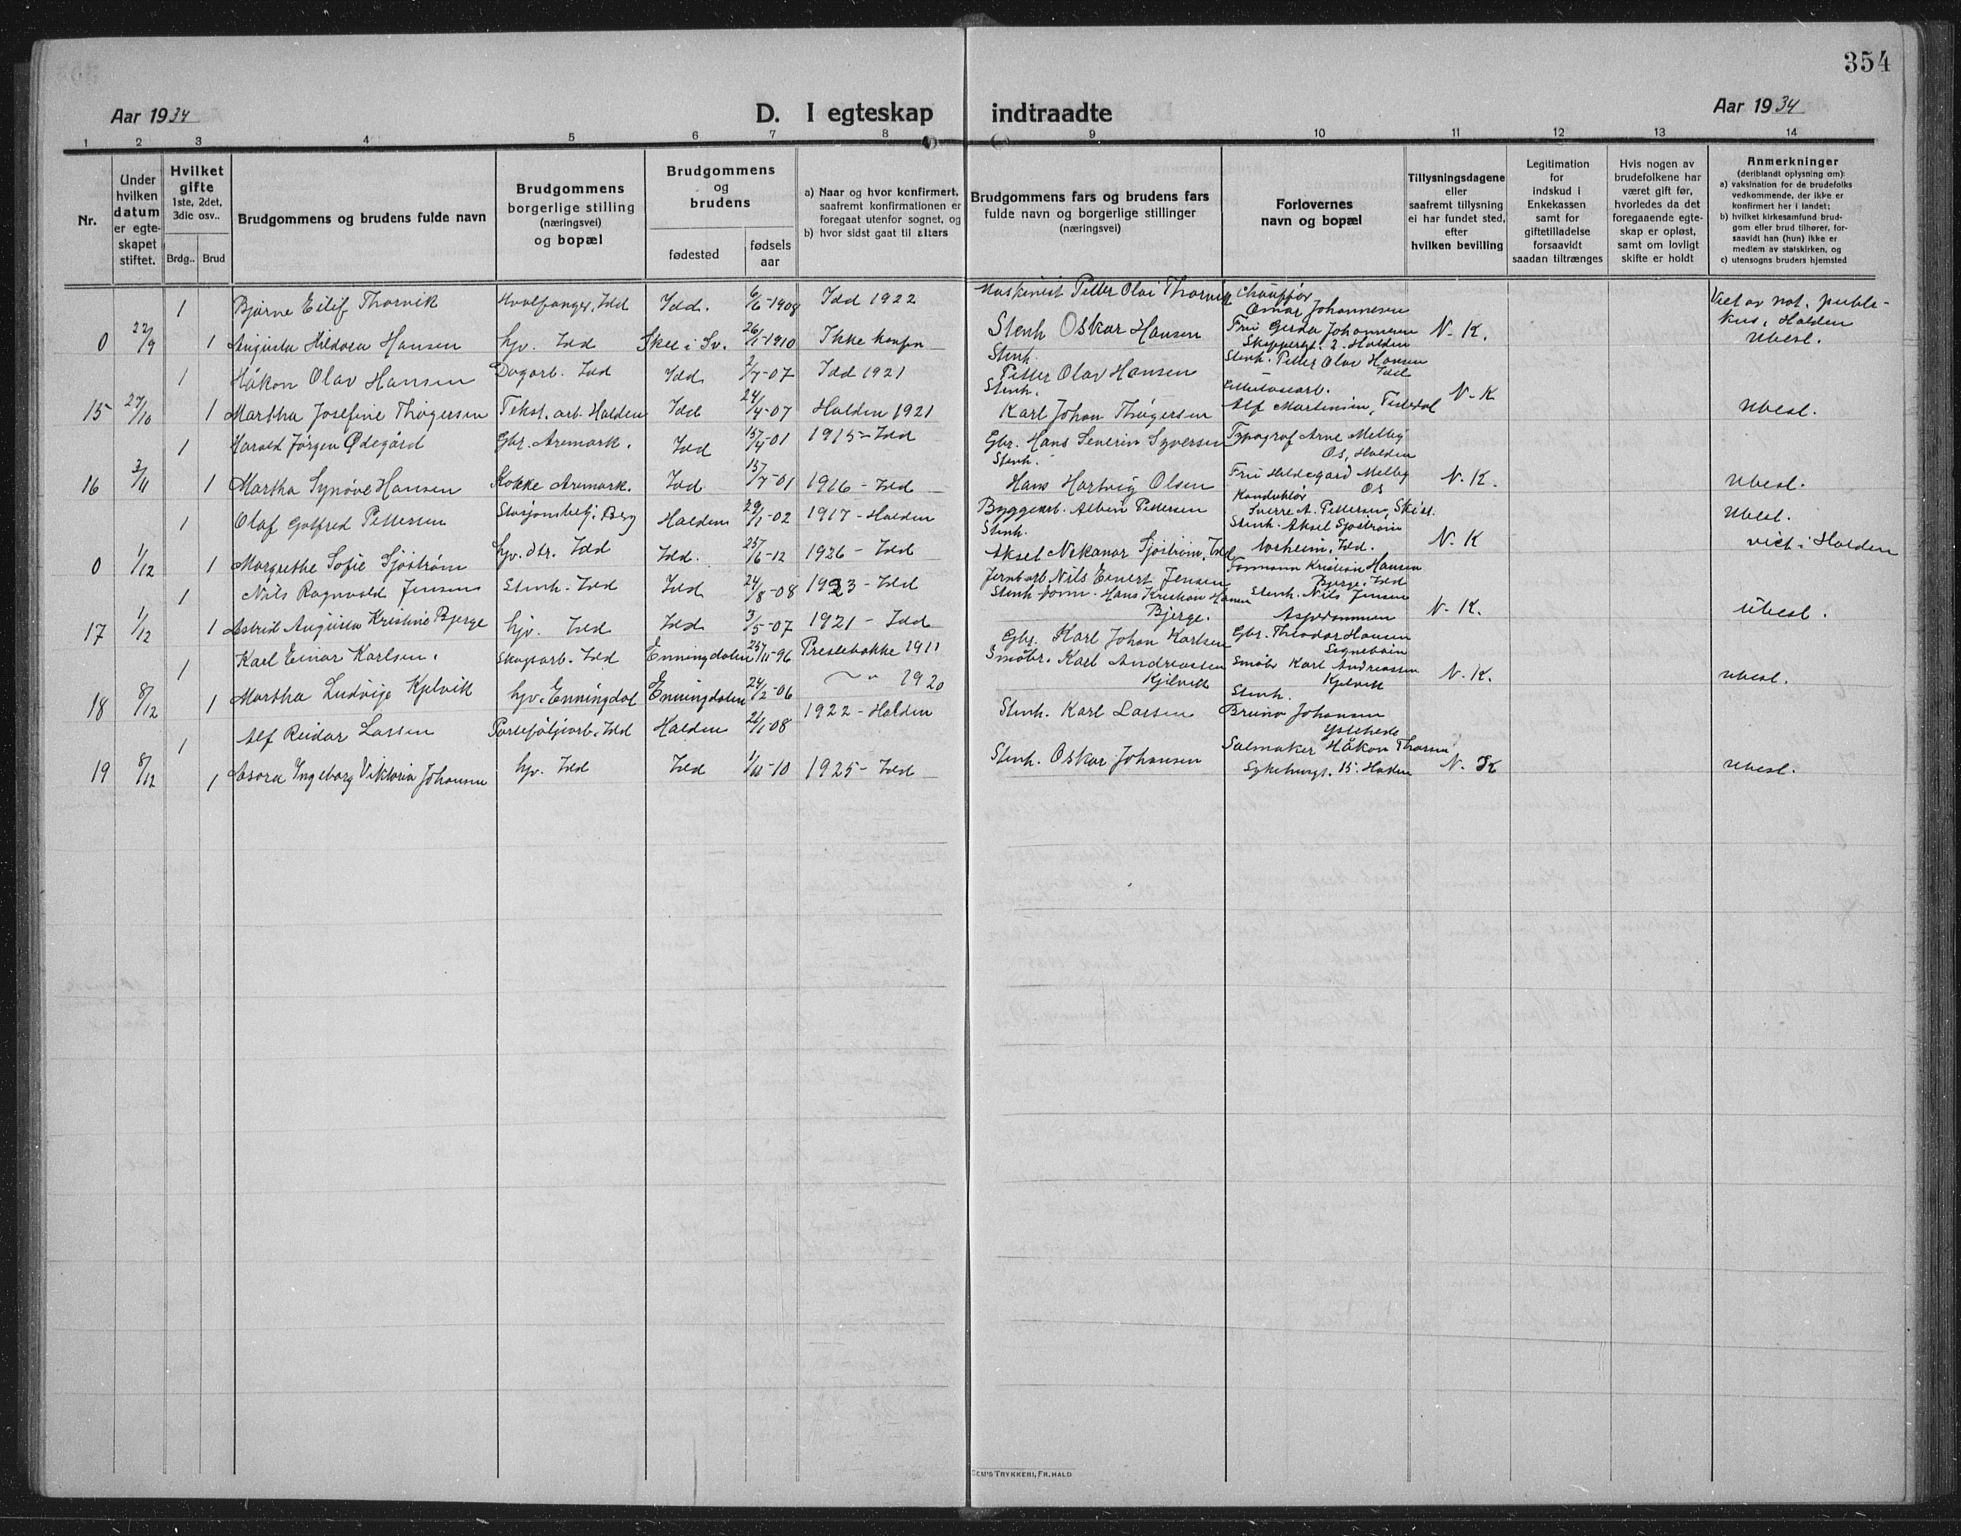 354
Aar 1934
D. I egteskap indtraadte
Aar 1934
1 2 3 4 5 6 7 8 9 10 11 12 13 14
Nr.
Under hvilken datum er egteskapet stiftet.
Hvilket gifte 1ste, 2det, 3die osv..
Brdg.. Brud
Brudgommens og brudens fulde navn
Brudgommens borgerlige stilling (næringsvei) og bopæl
Brudgommens og brudens
fødested
fødsels aar
a) Naar og hvor konfirmert, saafremt konfirmationen er foregaat utenfor sognet, og
b) hvor sidst gaat til alters
Brudgommens fars og brudens fars fulde navn og borgerlige stillinger (næringsvei)
Forlovernes navn og bopæl
Tillysningsdagene eller saafremt tillysning ei har fundet sted, efter hvilken bevilling
Legitimation for indskud i Enkekassen samt for giftetilladelse forsaavidt saadan tiltrænges
Hvis nogen av brudefolkene har været gift før, hvorledes da det foregaaende egteskap er opløst, samt om lovligt skifte er holdt
Anmerkninger (deriblandt oplysning om):
a) vaksination for de brudefolks vedkommende, der ikke er konfirmert her i landet;
b) hvilket kirkesamfund brudgom eller brud tilhører, forsaavidt han (hun) ikke er medlem av statskirken, og
c) utensogns bruders hjemsted
1 Bjarne Eilif Thorvik Hvalfanger, Idd Idd. 6/6-1908 Idd 1922 Maskinist Petter Olai Thorvik Chauffør Omar Johannesen Viet av not. publikus, Halden
0 22/9 1 Augusta Hildora Hansen hjv. Idd Skee i Sv. 26/1-1910 Ikke konf. Stenh Oskar Hansen Fru Gerda Johannesen Skippergt. 2. Halden N-K. Ubesl.
1 Håkon Olav Hansen Dagarb. Idd Idd 2/7-07 Idd 1921 Stenh. Petter Olav Hansen Stenh. Petter Olav Hansen Idd
15 27/10 1 Martha Josefine Thøgersen Tekst. arb. Halden Idd 24/4-07 Halden 1921 Stenh. Karl Johan Thøgersen Alf Martinsen, Tistedal N-K Ubesl.
1 Harald Jørgen Ødegård Gbr. Aremark. Idd 15/4-01 1915-Idd Gbr. Hans Severin Syversen Typograf Arne Melby Os, Halden
16 3/11 1 Martha Synøve Hansen Kokke Aremark. Idd 15/7-01 1916-Idd Stenh. Hans Hartvig Olsen Fru Hildegard Melby Os N.K. Ubesl.
1 Olaf Gotfred Pettersen Stasjonsbetj. Berg Halden 29/1-02 1917-Halden Byggearb. Albin Pettersen Konduktør Sverre A. Pettersen, Ski st. Ubesl.
0 1/12 1 Margrethe Sofie Sjøstrøm hjv. dtr. Idd Idd. 25/6-12 1926-Idd Stenh. Aksel Nikanor Sjøstrøm, Idd Stenh. Aksel Sjøstrøm Idd. N.K viet i Halden
1 Nils Ragnvald Jensen Stenh. Idd Idd 24/8-08 1923-Idd Jernbarb Nils Einert Jensen Formann Kristian Hansen Bjerge. Idd
17 1/12 1 Astrid Augusta Kristine Bjerge hjv. Idd Idd 3/5-07 1921-Idd Stenh. form. Hans Kristian Hansen Bjerge. Stenh. Nils Jensen Aspedammen N-K. Ubesl.
1 Karl Einar Karlsen. Skogarb. Idd Enningdalen 25/11-96 Prestebakke 1911 Gbr. Karl Johan Karlsen Gbr. Theodor Hansen
18 8/12 1 Martha Ludvije Kjelvik hjv. Enningdal Enningdalen 24/2-06 -"- 1920 Småbr. Karl Andreassen Kjelvik Småbr Karl Andreassen Kjelvik N.K. Ubesl.
1 Alf Reidar Larsen Porteføljearb. Idd Halden 21/1-08 1922-Halden Stenh. Karl Larsen Stenh. Bruno Johansen Ystehede
19 8/12 1 Asora Ingeborg Viktoria Johansen hjv. Idd Idd 1/11-10 1925-Idd Stenh. Oskar Johansen Salmaker Håkon Sykehusgt. 15. Halden N.K Ubesl.
SEM'S TRYKKERI, FR.HALD